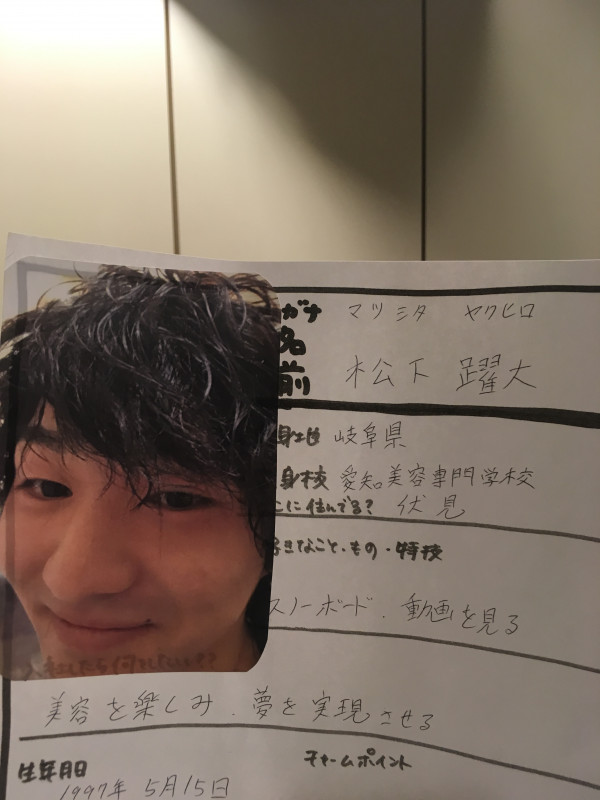 ガナ マツシタ ヤクヒロ
名前 松下 躍大
身地 岐阜県
身校 愛知美容専門学校
こに住んでる? 伏見
きなこと・もの・特技
スノーボード、動画を見る
入社したら何をしたい?
美容を楽しみ、夢を実現させる
生年月日 チャームポイント
1997年 5月15日